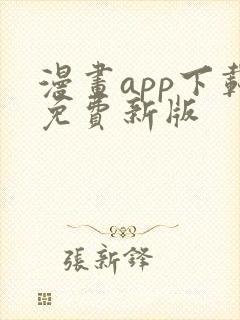 漫畫app下載
免費新版
張新鋒